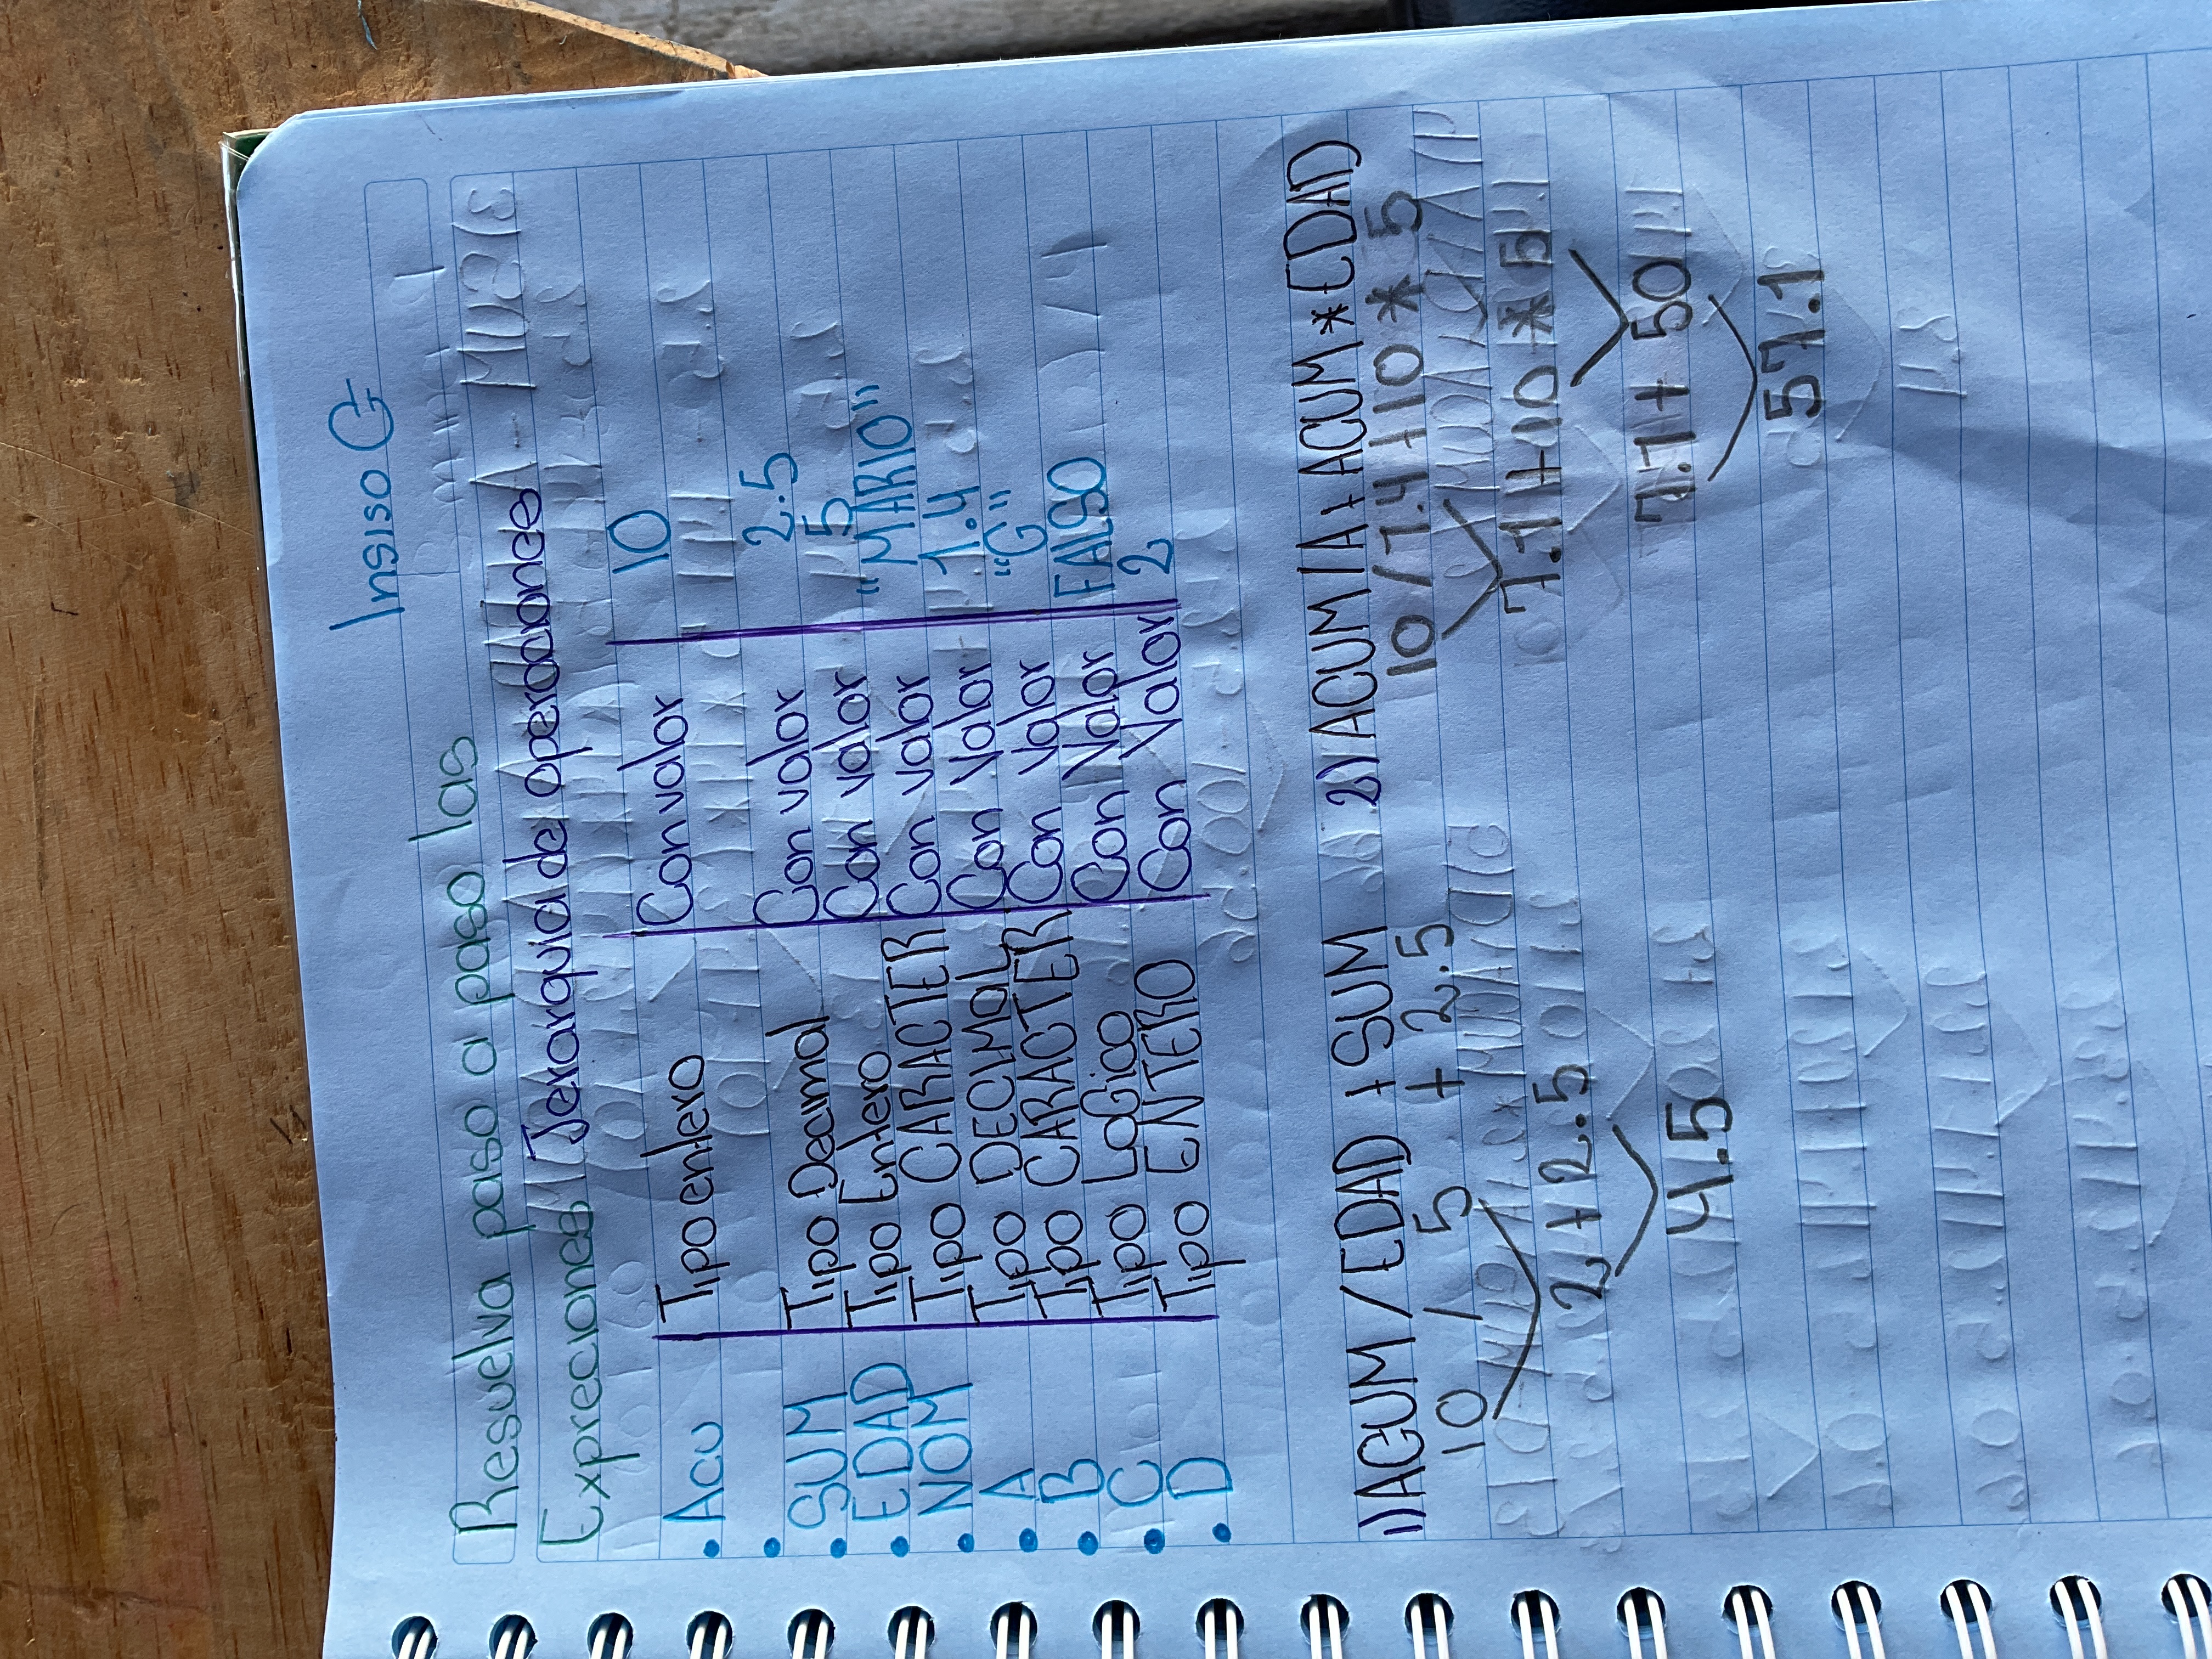 Insiso G
Resuelva paso a paso las
Expreciones Jerarquia de operaciones
• Acu Tipo entero Con valor 10
•
• SUM Tipo Decimal Con valor 2.5
• EDAD Tipo Entero Con valor 5
• NOM Tipo CARACTER Con valor "MARIO"
• A Tipo DECIMAL Con Valor 1.4
• B Tipo CARACTER Con Valor "G"
• C Tipo Logico Con Valor FALSO
• D Tipo ENTERO Con Valor 2
1) ACUM / EDAD + SUM
10 / 5 + 2.5
2 + 2.5
4.5
2) ACUM / A + ACUM * EDAD
10 / 1.4 + 10 * 5
7.1 + 10 * 5
7.1 + 50
57.1